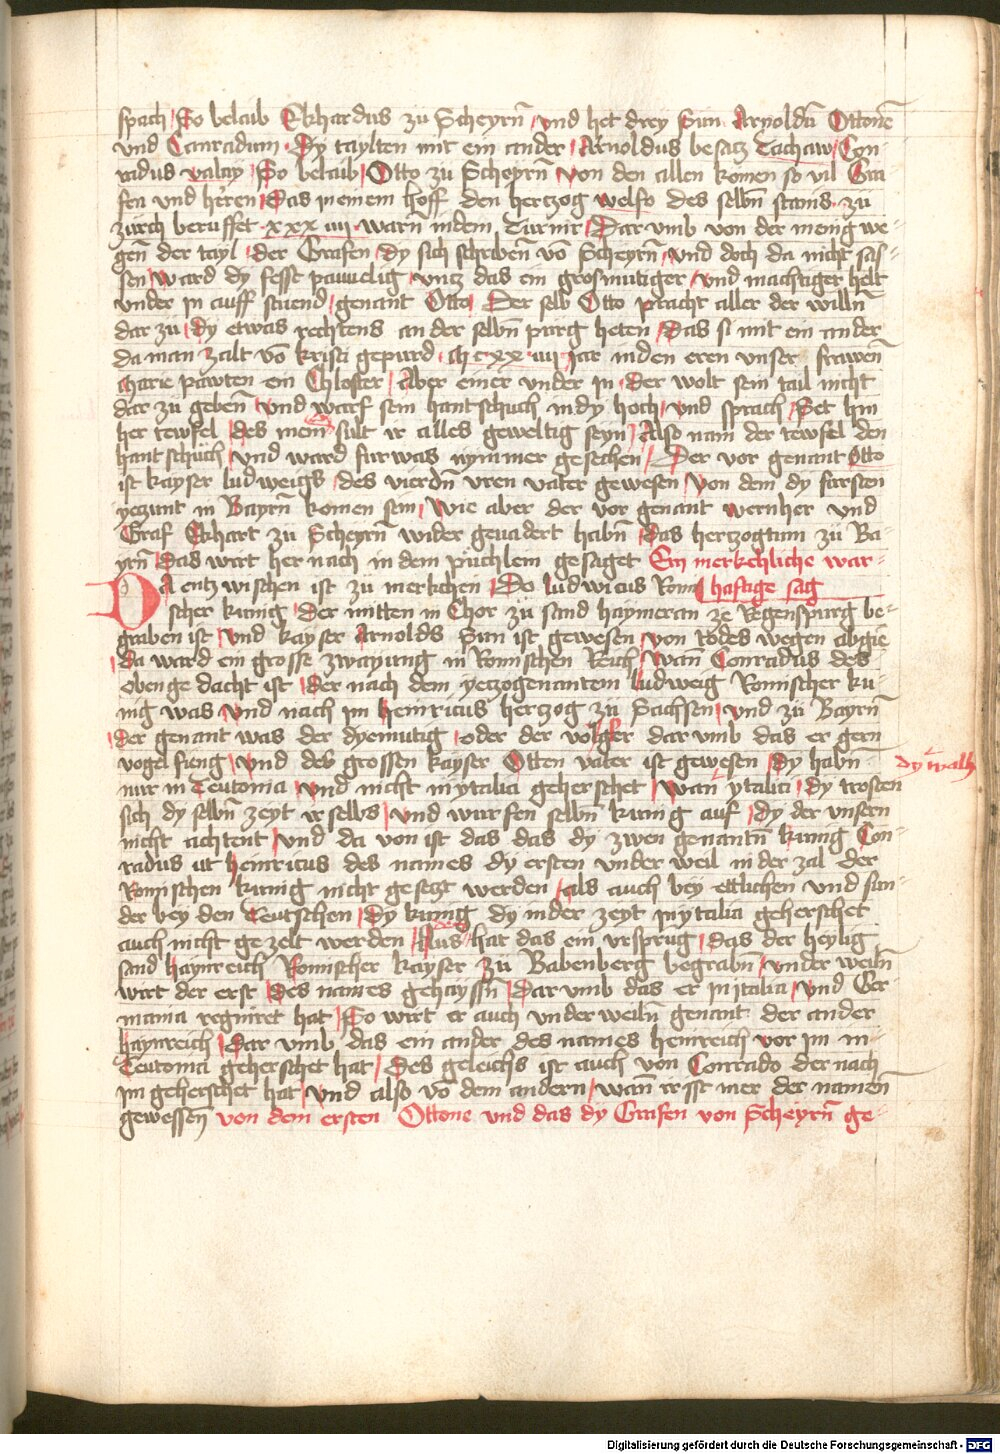 spach So belaib Ekhardus zu Scheyrn̄ und het drey Sun Arnoldū Ottonē
und Conradum Dy taylten mit ein ander Arnoldus besatz Tachaw Con-
radus valay So belaib Otto zu Scheyrn̄ von den allen komen so vil Gra
fen und herren Das in einem hoff den hertzog welfo des selbn̄ stams zu
zürch beruffet xxx iiii warn indem Turnir Dar umb von der menig we-
gen̄ der tayl der Grafen dy sich schriben vō Scheyrn̄ und doch da nicht sas-
sen ward dy fesst pauuelig untz das ein grosmutiger und mächtiger helt
under in auff stuend genant Otto Der selb Otto pracht aller der willn̄
dar zu dy etwas rechtens an der selbn̄ purg heten Das si mit ein ander
da man zalt vō kristi gepurd M c xx iiii Jar inden eren unser frawen̄
Marie pawten ein Chloster Aber einer under in der wolt sein tail nicht
dar zu geben̄ und warf sein hantschuch indy hoch und sprach Set hin
her tewfel des mein sült ir alles geweltig seyn Also nam der tewfel den
hantschüch und ward fürwas nymmer gesechen Der vor genant Otto
ist kayser ludweigs des vierdn̄ uren vater gewesen von dem dy fürsten
yetzunt in Bayrn̄ komen sein Wie aber der vor genant wernher und
Graf Ekhart zu Scheyrn̄ wider genadert habn̄ das hertzogtum zü Ba-
yrn̄ Das wirt her nach in dem püchlem gesaget Ein merkchliche war-
Da entzwischen ist zu merkchen Do ludwicus Romi haftige sag
scher kunig Der mitten in Chor zü sand haymeran ze Regenspurg be-
graben ist und kayser Arnolds Sun ist gewesen von todes wegen abgie
Da ward ein grosse zwayung in Romischen Reich wan̄ Conradus des
oben gedacht ist Der nach dem yetzogenantem ludweig Romischer ku-
nig was und nach im heinricus hertzog zu Sachsen und zu Bayrn̄
Der genant was der dyemutig oder der volger dar umb das er gern
vogel fieng und des grossen kayser Otten vater ist gewesen Dy habn̄ dy walh
nur in Teutonia und nicht in ytalia geherschet wan ytalici dy trosten
sich dy selbn̄ zeyt ir selbs und wurfen selbn̄ kunig auf dy der unsern
nicht achtent und da von ist das das dy zwen genantn̄ kunig Con-
radus ut heinricus des names dy ersten under weil in der zal der
Romischen kunig nicht gesetzt werden als auch bey ettlichen und sun-
der bey den Teutschen Dy kunig dy in der zeyt in ytalia geherschet
auch nicht gezelt werden Aus hat das ein ursprug das der heylig
sand haynreich Romischer kayser zu Babenberg begrabn̄ under weiln̄
wirt der erst des names gehayssn̄ Dar umb das er in italia und Ger
mania regniret hat So wirt er auch under weiln̄ genant der ander
haynreich Dar umb das ein ander des names heinreich vor im in
Teutonia geherschet hat Des geleichs ist auch von Conrado der nach
im geherschet hat und also vō dem andern wan er isst mer der namen̄
gewessen̄ von dem ersten Ottone und das dy Grafen von Scheyrn̄ ge-
Digitalisierung gefördert durch die Deutsche Forschungsgemeinschaft - DFG